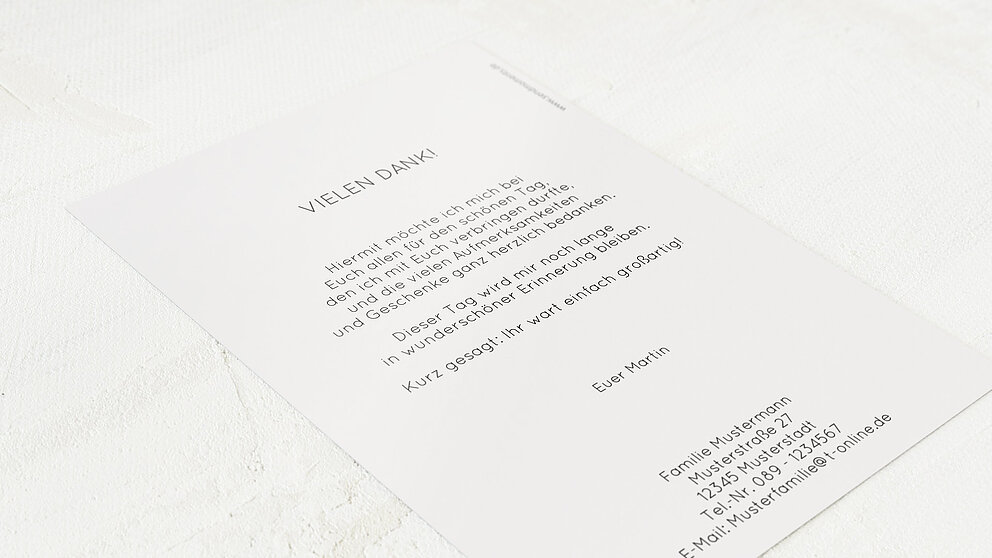 www.sendmoments.de
VIELEN DANK!
Hiermit möchte ich mich bei
Euch allen für den schönen Tag,
den ich mit Euch verbringen durfte,
und die vielen Aufmerksamkeiten
und Geschenke ganz herzlich bedanken.
Dieser Tag wird mir noch lange
in wunderschöner Erinnerung bleiben.
Kurz gesagt: Ihr wart einfach großartig!
Euer Martin
Familie Mustermann
Musterstraße 27
12345 Musterstadt
Tel.-Nr. 089 - 1234567
E-Mail: Musterfamilie@t-online.de